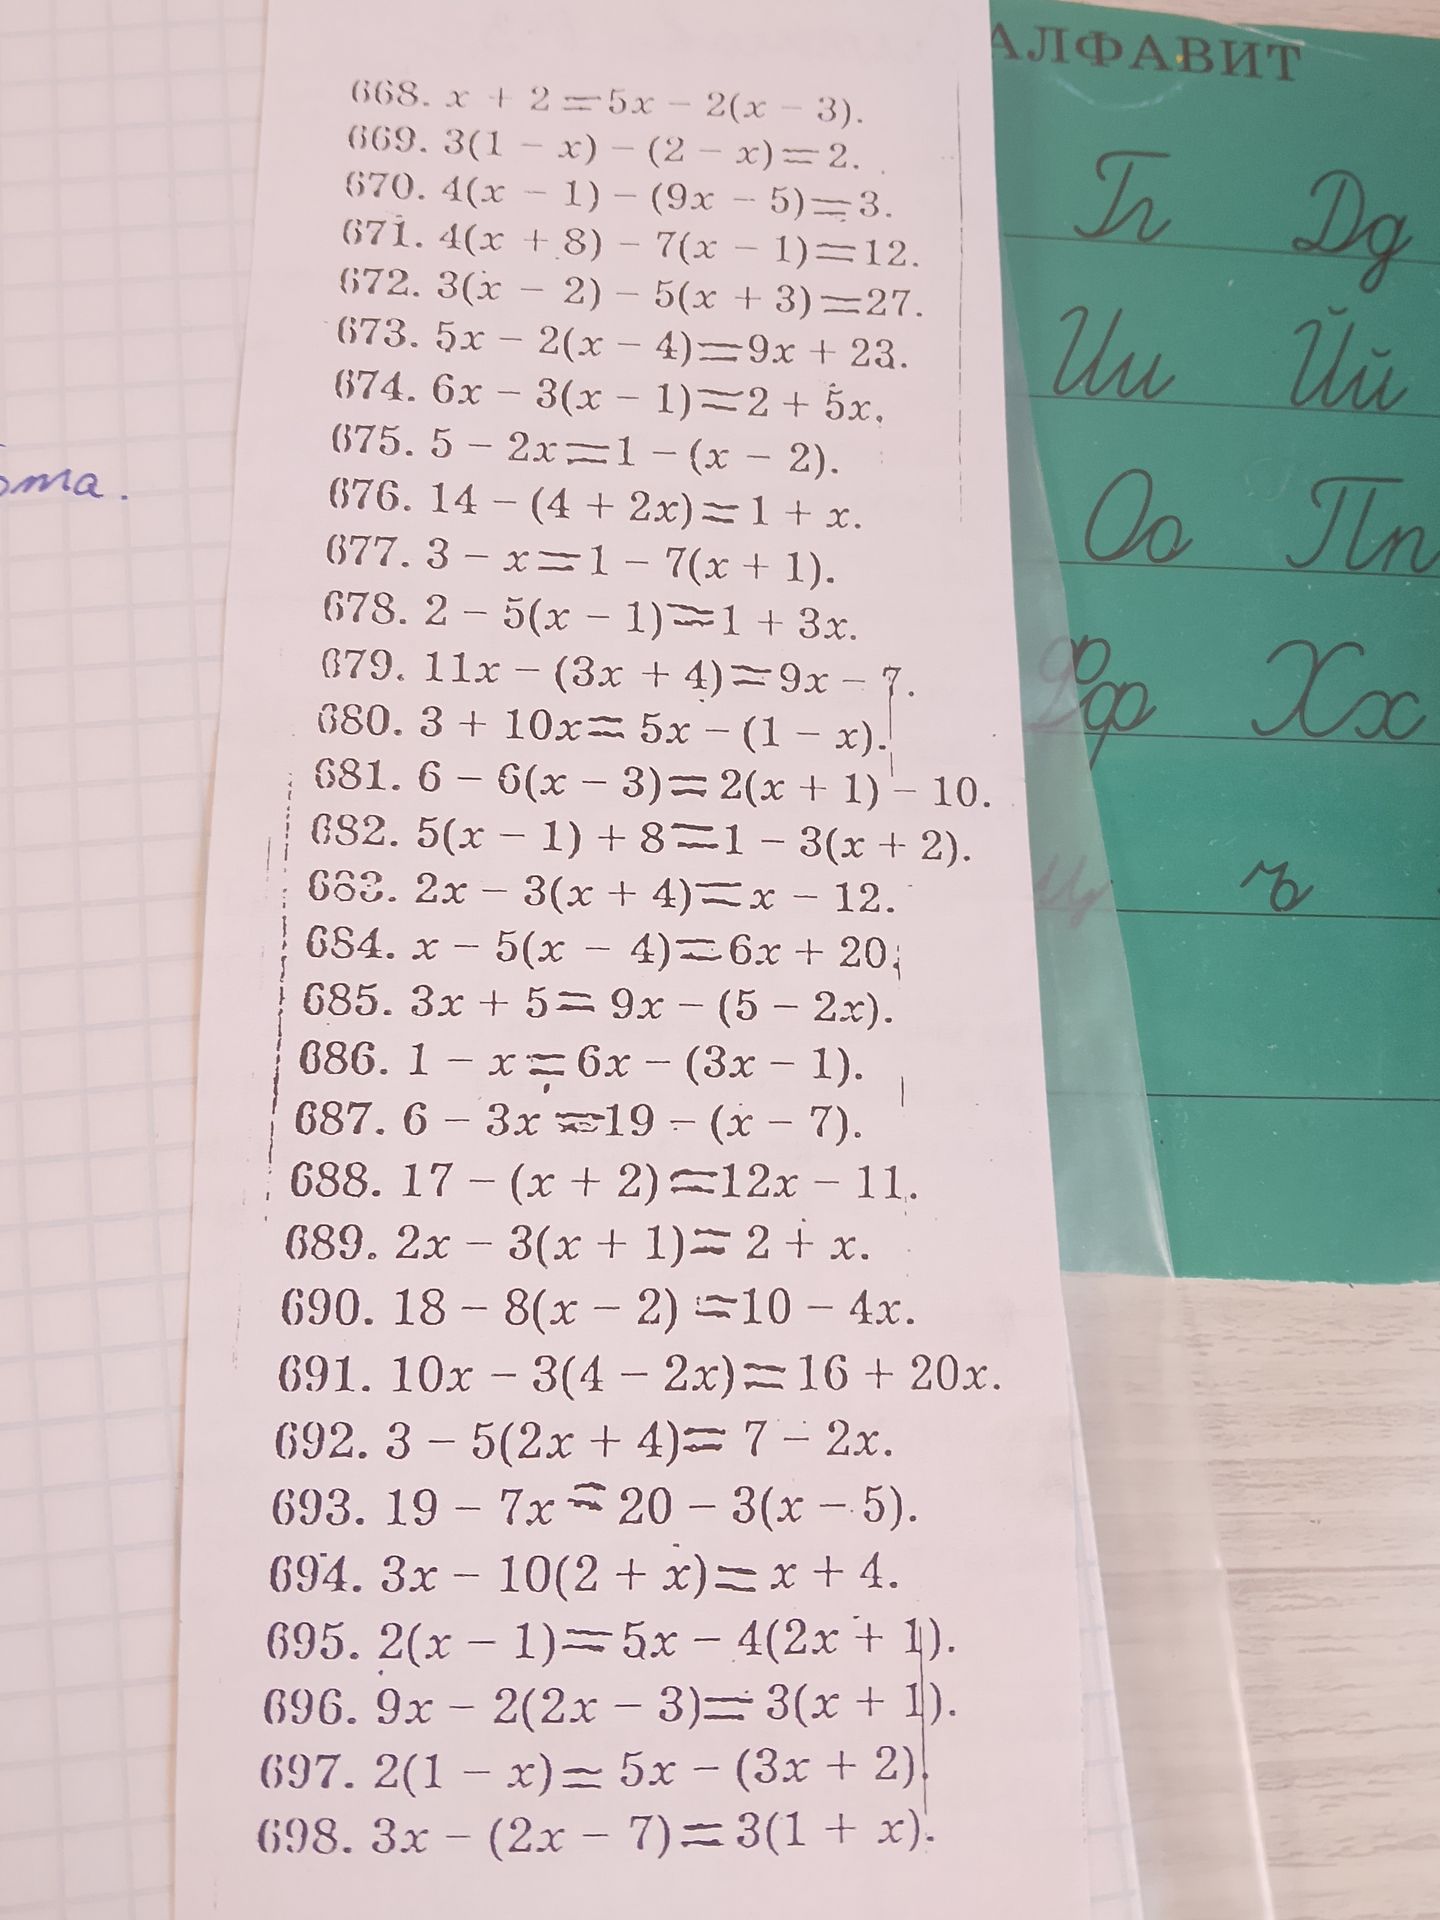 668. x + 2 = 5x − 2(x − 3).
669. 3(1 − x) − (2 − x) = 2.
670. 4(x − 1) − (9x − 5) = 3.
671. 4(x + 8) − 7(x − 1) = 12.
672. 3(x − 2) − 5(x + 3) = 27.
673. 5x − 2(x − 4) = 9x + 23.
674. 6x − 3(x − 1) = 2 + 5x.
675. 5 − 2x = 1 − (x − 2).
676. 14 − (4 + 2x) = 1 + x.
677. 3 − x = 1 − 7(x + 1).
678. 2 − 5(x − 1) = 1 + 3x.
679. 11x − (3x + 4) = 9x − 7.
680. 3 + 10x = 5x − (1 − x).
681. 6 − 6(x − 3) = 2(x + 1) − 10.
682. 5(x − 1) + 8 = 1 − 3(x + 2).
683. 2x − 3(x + 4) = x − 12.
684. x − 5(x − 4) = 6x + 20.
685. 3x + 5 = 9x − (5 − 2x).
686. 1 − x = 6x − (3x − 1).
687. 6 − 3x = 19 − (x − 7).
688. 17 − (x + 2) = 12x − 11.
689. 2x − 3(x + 1) = 2 + x.
690. 18 − 8(x − 2) = 10 − 4x.
691. 10x − 3(4 − 2x) = 16 + 20x.
692. 3 − 5(2x + 4) = 7 − 2x.
693. 19 − 7x = 20 − 3(x − 5).
694. 3x − 10(2 + x) = x + 4.
695. 2(x − 1) = 5x − 4(2x + 1).
696. 9x − 2(2x − 3) = 3(x + 1).
697. 2(1 − x) = 5x − (3x + 2).
698. 3x − (2x − 7) = 3(1 + x).
АЛФАВИТ
Гг Дд
Ии Йй
Оо Пп
Фф Хх
ъ